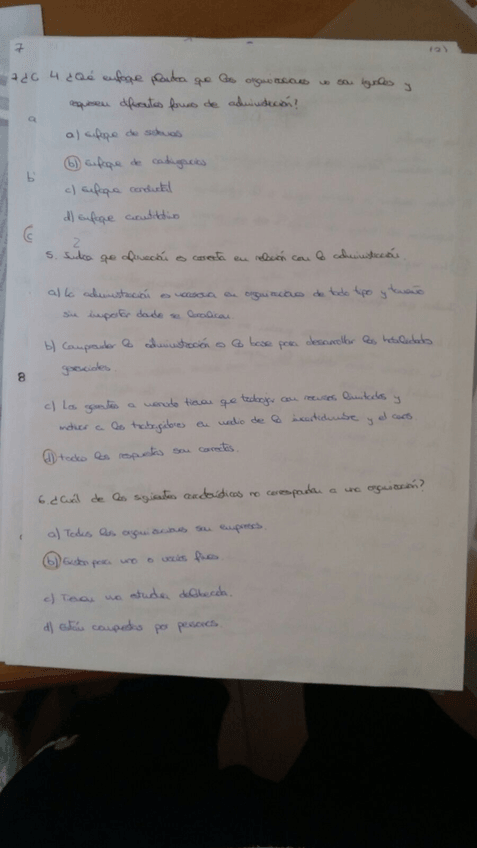 7
(2)
7 ¿C 4 ¿Qué enfoque plantea que las organizaciones no son iguales y
requieren diferentes formas de administración?
a
a) enfoque de sistemas
b) enfoque de contingencias
b
c) enfoque conductal
d) enfoque cuantitativo
c
2
5. Indica que afirmación es correcta en relación con la administración
a) La administración es necesaria en organizaciones de todo tipo y tamaño
sin importar donde se localizan.
b) Comprender la administración es la base para desarrollar las habilidades
gerenciales.
8
c) Los gerentes a menudo tienen que trabajar con recursos limitados y
motivar a los trabajadores en medio de la incertidumbre y el caos
d) todas las respuestas son correctas.
6 ¿Cuál de las siguientes características no corresponden a una organización?
a) Todas las organizaciones son empresas.
b) Existen para uno o varios fines.
c) Tienen una estructura deliberada.
d) Están compuestas por personas.